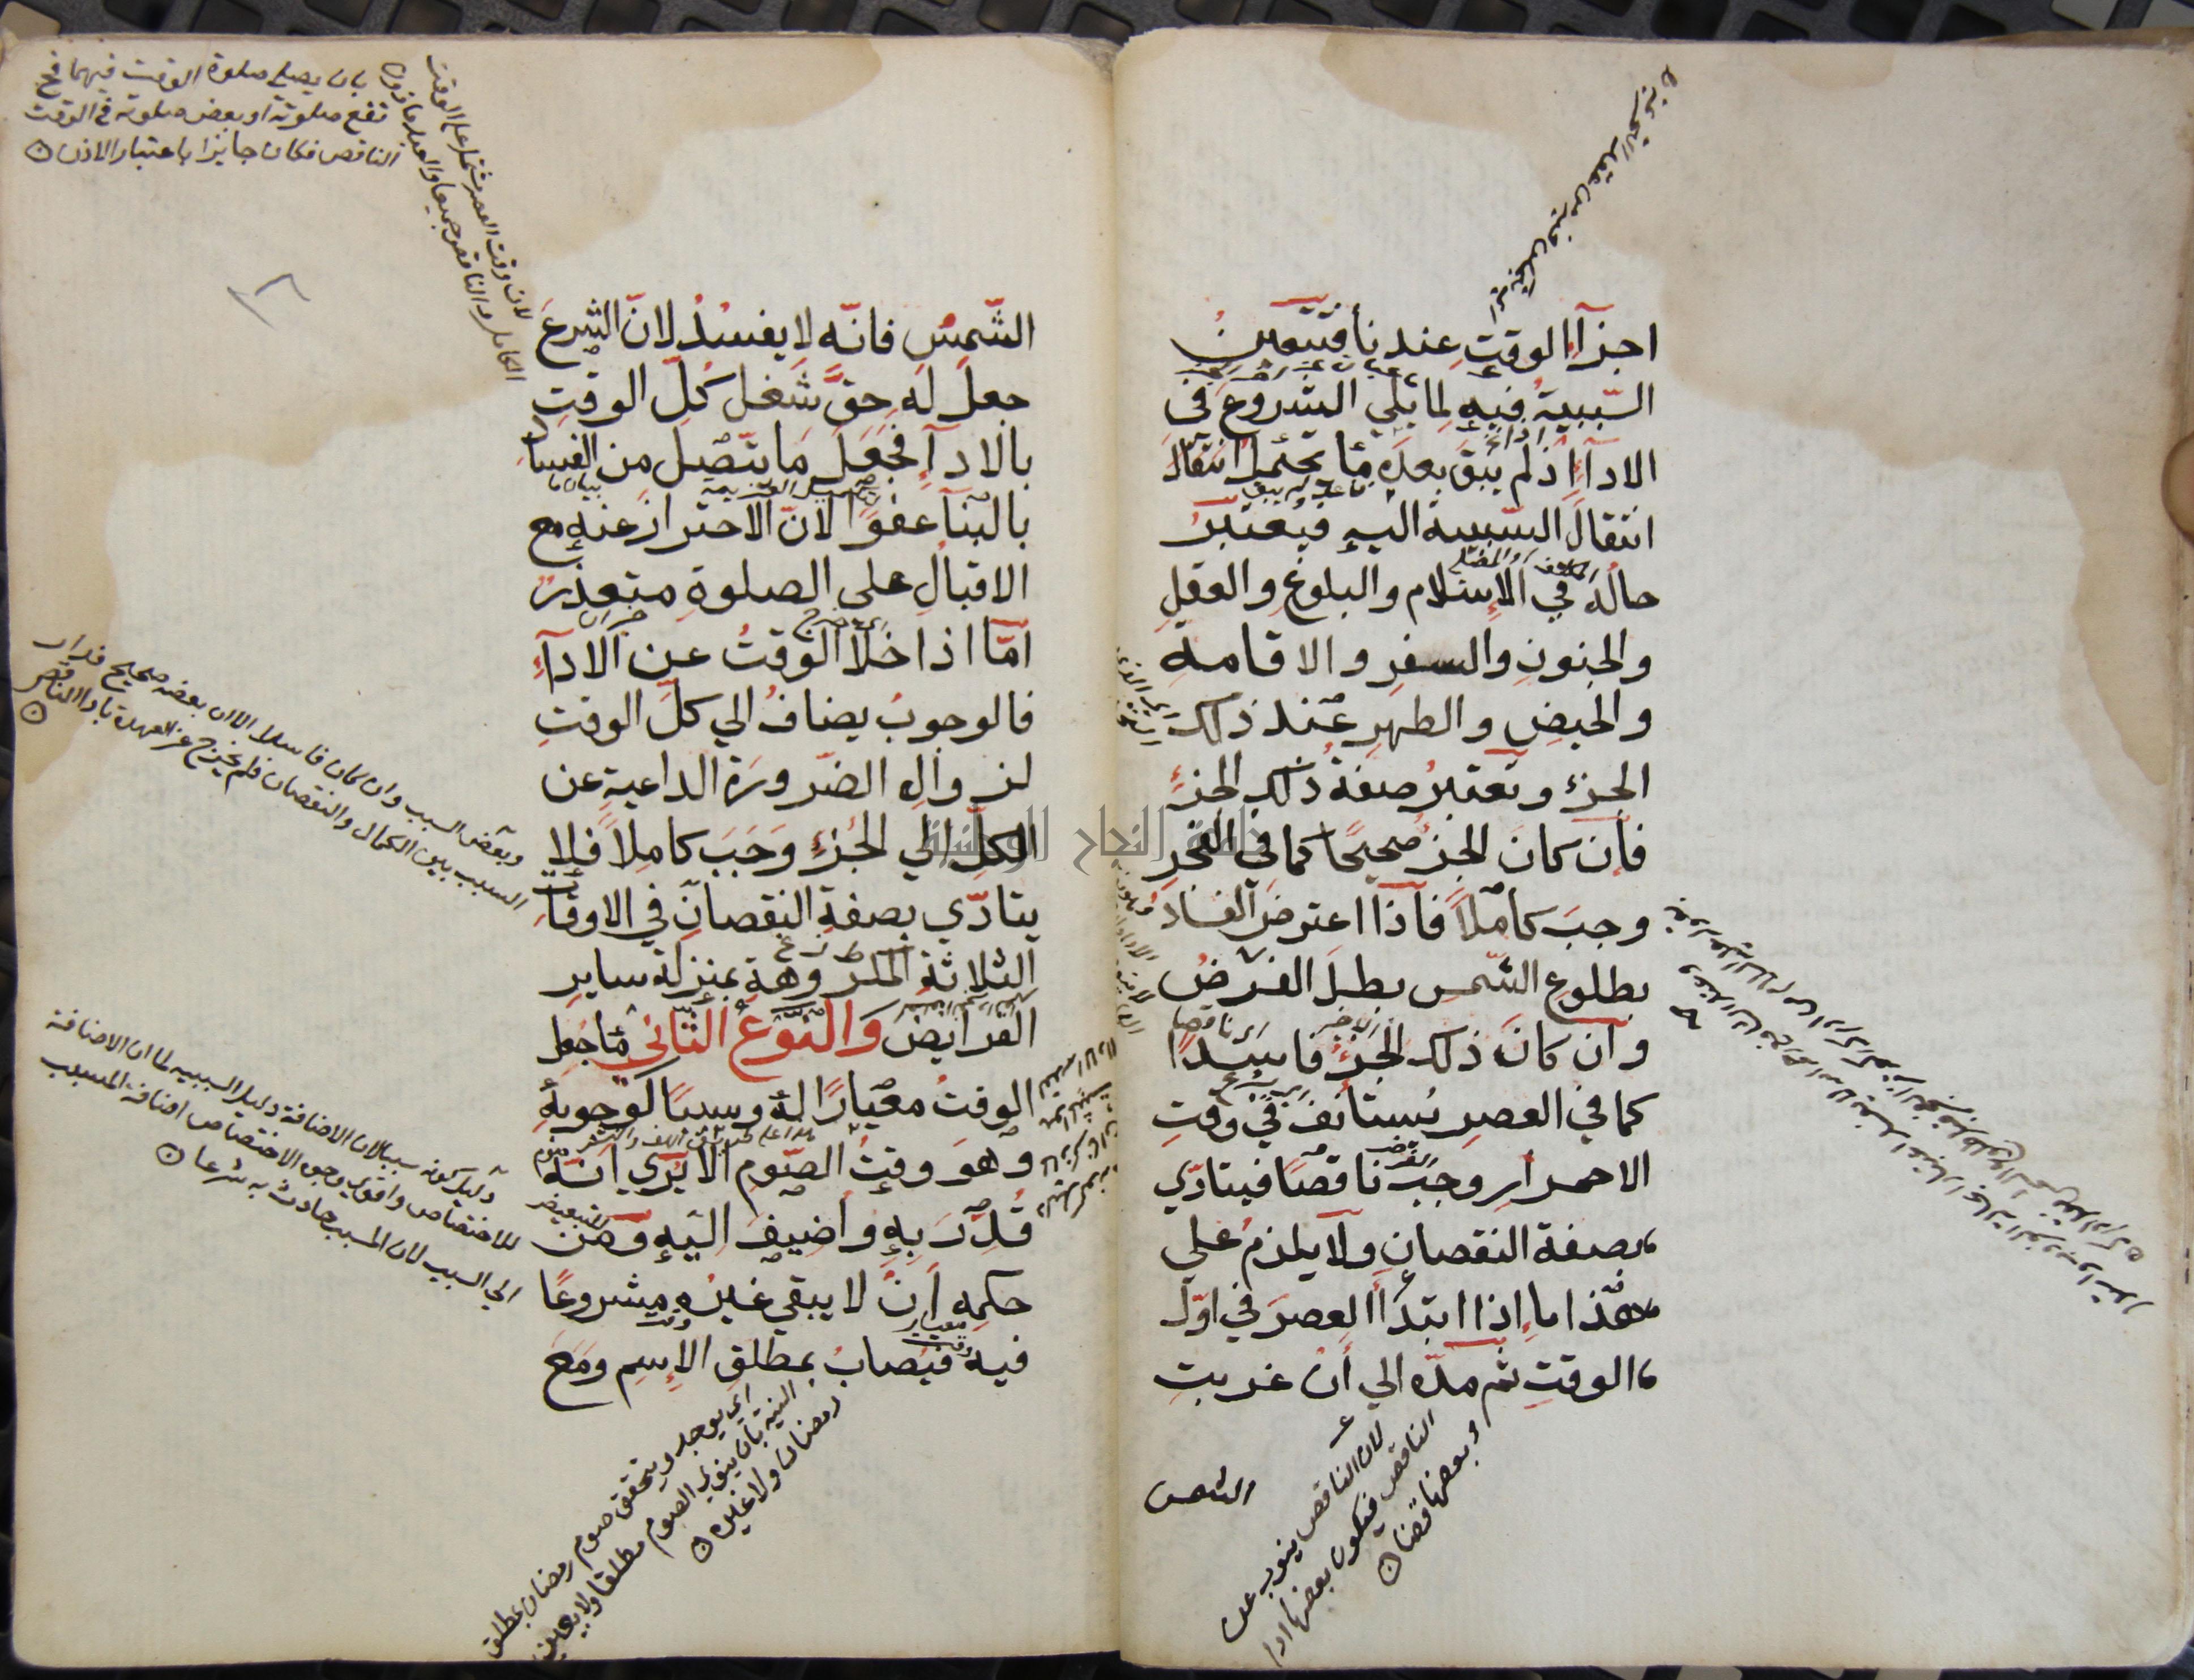 اجزآءِ الوقتِ عندنا فتتعين
السّببيةُ فيه لما يلي الشروعَ في
الادآءِ اذ لم يبقَ بعده ما يحتمل انتقالَ
انتقالَ السببية اليهِ فيعتبرُ
حالُه في الاِسلام والبلوغِ والعقلِ
والجنونِ والسفرِ والاقامة
والحيضِ والطهرِ عند ذلك
الجزءِ وتعتبرُ صفةُ ذلك الجزءِ
فان كانَ الجزءُ صحيحًا كما في الفجرِ
وجبَ كاملاً فاذا اعترضَ الفسادُ
بطلوعِ الشّمسِ بطلَ الفرضُ
وان كانَ ذلك الجزءُ فاسدًا
كما في العصرِ يُستأنفُ في وقتِ
الاحمرارِ وجبَ ناقصًا فيتادّي
بصفة النقصانِ ولا يلزمُ علي
هذا ما اذا ابتدأ العصرَ في اوّل
الوقتِ ثم مدّه الي اَن غربتِ
الشمس
لان الناقص ينوب عن
الناقص فيكون بعضها ادا
وبعضها قضا
الشّمسُ فانّه لا يفسُدُ لانّ الشرعَ
جعلَ له حقَّ شَغل كُلّ الوقتِ
بالادآءِ فجُعلَ ما يتّصِل من الفساد
بالبنآءِ عفوًا لانّ الاحترازَ عنه مع
الاقبالِ علي الصلوةِ متعذرٌ
امّا اذا خلا الوقتُ عن الادآءِ
فالوجوبُ يضافُ الي كلّ الوقتِ
لزوالِ الضّرورَة الداعيةِ عن
الكلّ الي الجُزءِ وَجَبَ كاملاً فلا
يتادّي بصفةِ النقصانِ في الاوقاتِ
الثلاثة المكروهةِ بمنزلة سايرِ
الفرايضِ وَالنّوعُ الثّاني ما جُعل
الوقتُ معيارًا لهُ وسببًا لوجوبهِ
وهوَ وقتُ الصّومِ الا يُري انّهُ
قُدّرَ بِهِ واُضيفَ اليهِ ومن
حكمِهِ اَنْ لا يبقي غيرُه مشروعًا
فيه فيُصابُ بمطلقِ الاِسمِ ومَعَ
بان يصلي صلوة الوقت فيهما فح
تقع صلوته او بعض صلوته في الوقت
الناقص فكان جايزا باعتبار الاذن
لان وقت العصر مشتمل علي الوقت
الكامل والناقص جميعا والعبد ماذون
وبعض السبب وان كان فاسدا الا ان بعضه صحيح فدار
السبب بين الكمال والنقصان فلم يخرج عن العهدة باداء الناقص
دليل كونه سببا لان الاضافة دليل السببيه لما ان الاضافة
للاختصاص واقوي وجوه الاختصاص اضافة المسبب
الي السبب لان المسبب حادث به شرعا
اي يوجد ويتحقق صوم رمضان بمطلق
النية بان ينوي الصوم مطلقا ولا يعين
رمضان ولا غيره
جامعة النجاح الوطنية